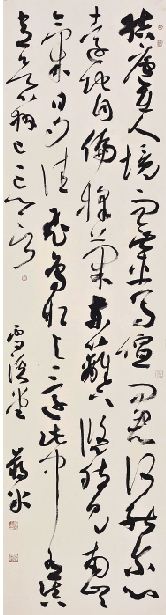 結廬在人境而無車馬喧問君何能爾心
遠地自偏採菊東籬下悠然見南山
氣日夕佳飛鳥相與還此中有真
意欲辨已忘言